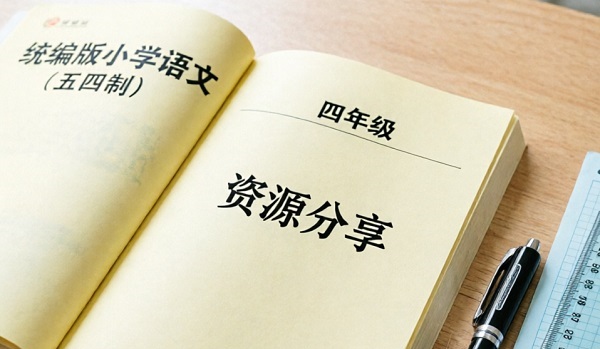 统编版小学语文
（五四制）
四年级
资源分享